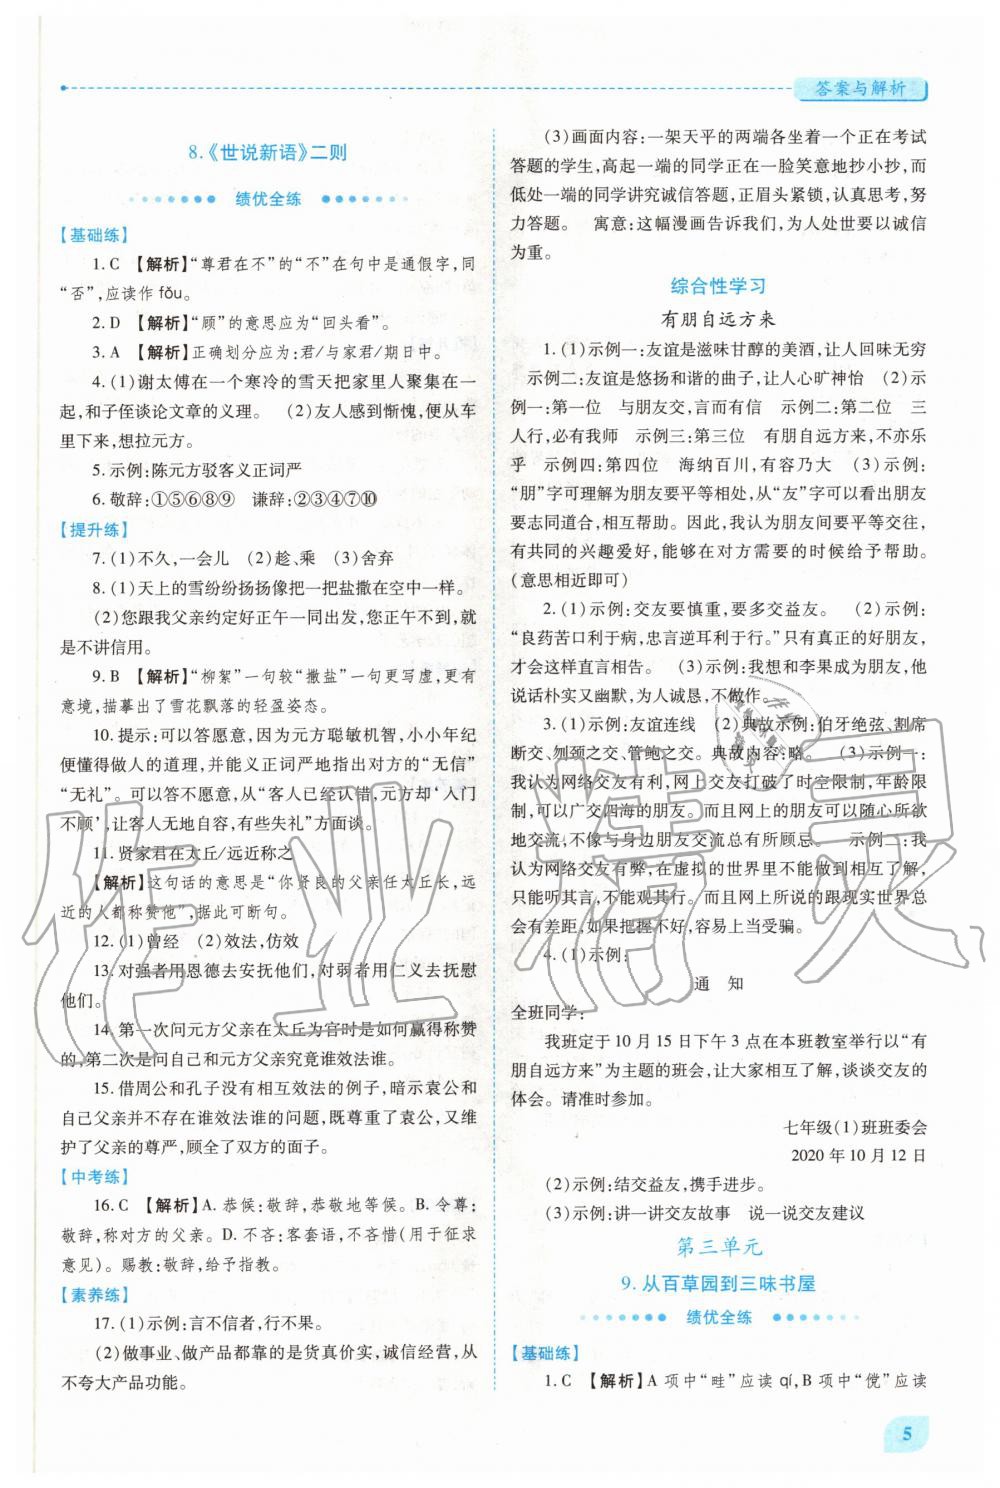 答案与解析
8.《世说新语》二则
绩优全练
【基础练】
1. C 【解析】“尊君在不”的“不”在句中是通假字，同
“否”，应读作 fǒu。
2. D 【解析】“顾”的意思应为“回头看”。
3. A 【解析】正确划分应为：君/与家君/期日中。
4. (1)谢太傅在一个寒冷的雪天把家里人聚集在一
起，和子侄谈论文章的义理。 (2)友人感到惭愧，便从车
里下来，想拉元方。
5. 示例：陈元方驳客义正词严
6. 敬辞：①⑤⑥⑧⑨ 谦辞：②③④⑦⑩
【提升练】
7. (1)不久，一会儿 (2)趁、乘 (3)舍弃
8. (1)天上的雪纷纷扬扬像把一把盐撒在空中一样。
(2)您跟我父亲约定好正午一同出发，您正午不到，就
是不讲信用。
9. B 【解析】“柳絮”一句较“撒盐”一句更写虚，更有
意境，描摹出了雪花飘落的轻盈姿态。
10. 提示：可以答愿意，因为元方聪敏机智，小小年纪
便懂得做人的道理，并能义正词严地指出对方的“无信”
“无礼”。可以答不愿意，从“客人已经认错，元方却‘入门
不顾’，让客人无地自容，有些失礼”方面谈。
11. 贤家君在太丘/远近称之
【解析】这句话的意思是“你贤良的父亲任太丘长，远
近的人都称赞他”，据此可断句。
12. (1)曾经 (2)效法，仿效
13. 对强者用恩德去安抚他们，对弱者用仁义去抚慰
他们。
14. 第一次问元方父亲在太丘为官时是如何赢得称赞
的，第二次是问自己和元方父亲究竟谁效法谁。
15. 借周公和孔子没有相互效法的例子，暗示袁公和
自己父亲并不存在谁效法谁的问题，既尊重了袁公，又维
护了父亲的尊严，顾全了双方的面子。
【中考练】
16. C 【解析】A. 恭候：敬辞，恭敬地等候。B. 令尊：
敬辞，称对方的父亲。D. 不吝：客套语，不吝惜(用于征求
意见)。赐教：敬辞，给予指教。
【素养练】
17. (1)示例：言不信者，行不果。
(2)做事业、做产品都靠的是货真价实，诚信经营，从
不夸大产品功能。
(3)画面内容：一架天平的两端各坐着一个正在考试
答题的学生，高起一端的同学正在一脸笑意地抄小抄，而
低处一端的同学讲究诚信答题，正眉头紧锁，认真思考，努
力答题。 寓意：这幅漫画告诉我们，为人处世要以诚信
为重。
综合性学习
有朋自远方来
1. (1)示例一：友谊是滋味甘醇的美酒，让人回味无穷
示例二：友谊是悠扬和谐的曲子，让人心旷神怡 (2)示
例一：第一位 与朋友交，言而有信 示例二：第二位 三
人行，必有我师 示例三：第三位 有朋自远方来，不亦乐
乎 示例四：第四位 海纳百川，有容乃大 (3)示例：
“朋”字可理解为朋友要平等相处，从“友”字可以看出朋友
要志同道合，相互帮助。因此，我认为朋友间要平等交往，
有共同的兴趣爱好，能够在对方需要的时候给予帮助。
(意思相近即可)
2. (1)示例：交友要慎重，要多交益友。 (2)示例：
“良药苦口利于病，忠言逆耳利于行。”只有真正的好朋友，
才会这样直言相告。 (3)示例：我想和李果成为朋友，他
说话朴实又幽默，为人诚恳，不做作。
3. (1)示例：友谊连线 (2)典故示例：伯牙绝弦、割席
断交、刎颈之交、管鲍之交。典故内容：略。 (3)示例一：
我认为网络交友有利，网上交友打破了时空限制，年龄限
制，可以广交四海的朋友。而且网上的朋友可以随心所欲
地交流，不像与身边朋友交流总有所顾忌。 示例二：我
认为网络交友有害，在虚拟的世界里不能做到相互了解，
只能听其言，不能观其行。而且网上所说的跟现实世界总
会有差距，如果把握不好，容易上当受骗。
4. (1)示例：
通 知
全班同学：
我班定于 10 月 15 日下午 3 点在本班教室举行以“有
朋自远方来”为主题的班会，让大家相互了解，谈谈交友的
体会。请准时参加。
七年级(1)班班委会
2020 年 10 月 12 日
(2)示例：结交益友，携手进步。
(3)示例：讲一讲交友故事 说一说交友建议
第三单元
9. 从百草园到三味书屋
绩优全练
【基础练】
1. C 【解析】A 项中“畦”应读 qí，B 项中“傥”应读
5
作业精灵